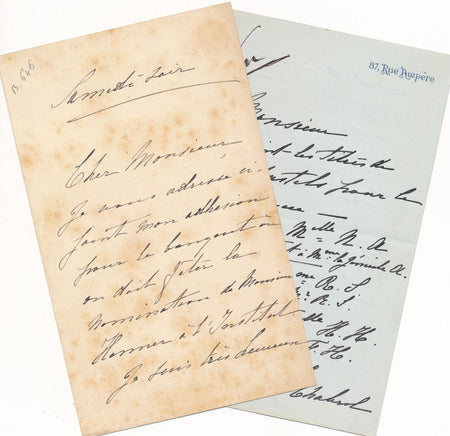 B. 646
Samedi soir
Cher Monsieur,
Je vous adresse ci-
joint mon adhésion
pour le banquet où
on doit fêter la
nomination de Monsieur
Henner à l'Institut
Je suis très heureux
87, Rue Ampère
Monsieur
les titres de
pastels pour le
Mlle N. A
Mme la Générale A.
R. S
R. S.
H. H.
F. H.